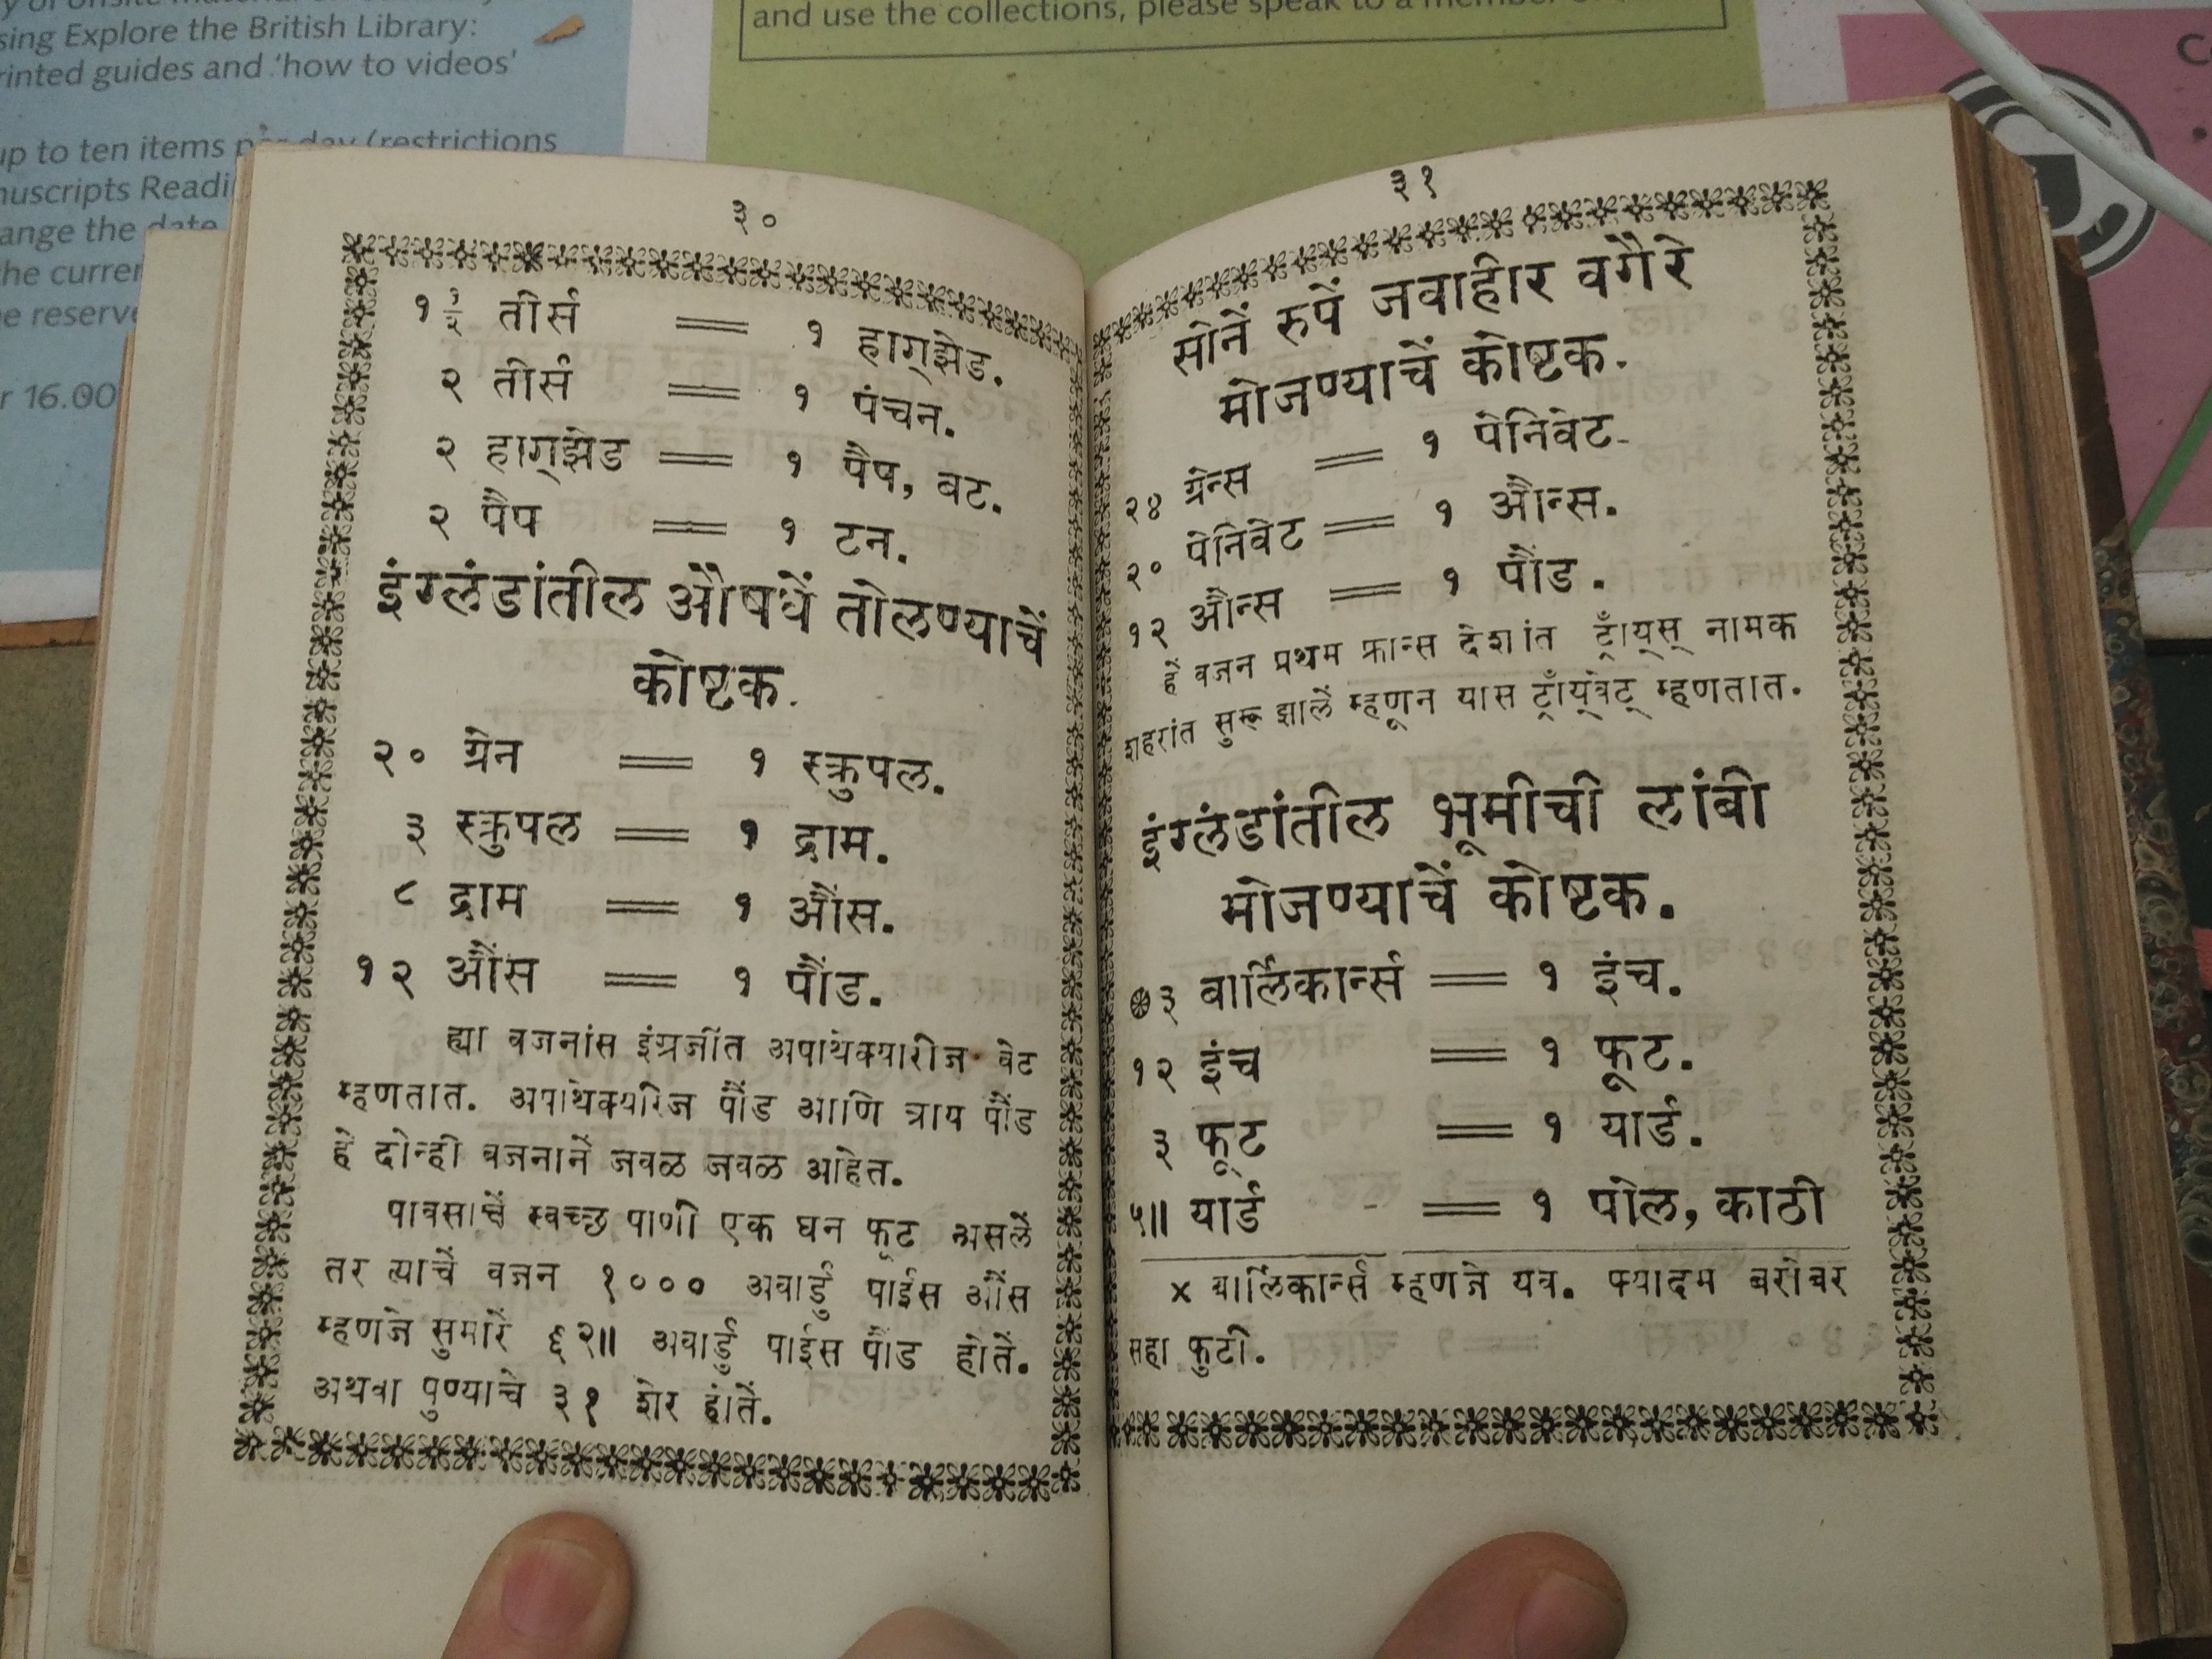 sing Explore the British Library:
rinted guides and 'how to videos'
up to ten items per day (restrictions
nuscripts Readi
ange the date
he curren
e reserve
r 16.00
and use the collections, please speak to a member
३०
१ १/२ तीर्स = १ हाग्झेड.
२ तीर्स = १ पंचन.
२ हाग्झेड = १ पैप, बट.
२ पैप = १ टन.
इंग्लंडांतील औषधें तोलण्याचें
कोष्टक.
२० ग्रेन = १ स्क्रुपल.
३ स्क्रुपल = १ द्राम.
८ द्राम = १ औंस.
१२ औंस = १ पौंड.
ह्या वजनांस इंग्रजींत अपाथेक्यारीज वेट
म्हणतात. अपाथेक्यरिज पौंड आणि त्राय पौंड
हे दोन्ही वजनानें जवळ जवळ आहेत.
पावसाचें स्वच्छ पाणी एक घन फूट असलें
तर त्याचें वजन १००० अवार्डु पाईस औंस
म्हणजे सुमारें ६२॥ अवार्डु पाईस पौंड होतें.
अथवा पुण्याचे ३१ शेर होतें.
३१
सोनें रुपें जवाहीर वगैरे
मोजण्याचें कोष्टक.
२४ ग्रेन्स = १ पेनिवेट.
२० पेनिवेट = १ औन्स.
१२ औन्स = १ पौंड.
हें वजन प्रथम फ्रान्स देशांत ट्राँय्स् नामक
शहरांत सुरू झालें म्हणून यास ट्राँय्वेट् म्हणतात.
इंग्लंडांतील भूमीची लांबी
मोजण्याचें कोष्टक.
३ बार्लिकार्न्स = १ इंच.
१२ इंच = १ फूट.
३ फूट = १ यार्ड.
५॥ यार्ड = १ पोल, काठी
× बार्लिकार्न्स म्हणजे यव. फ्यादम बरोबर
सहा फुटी.